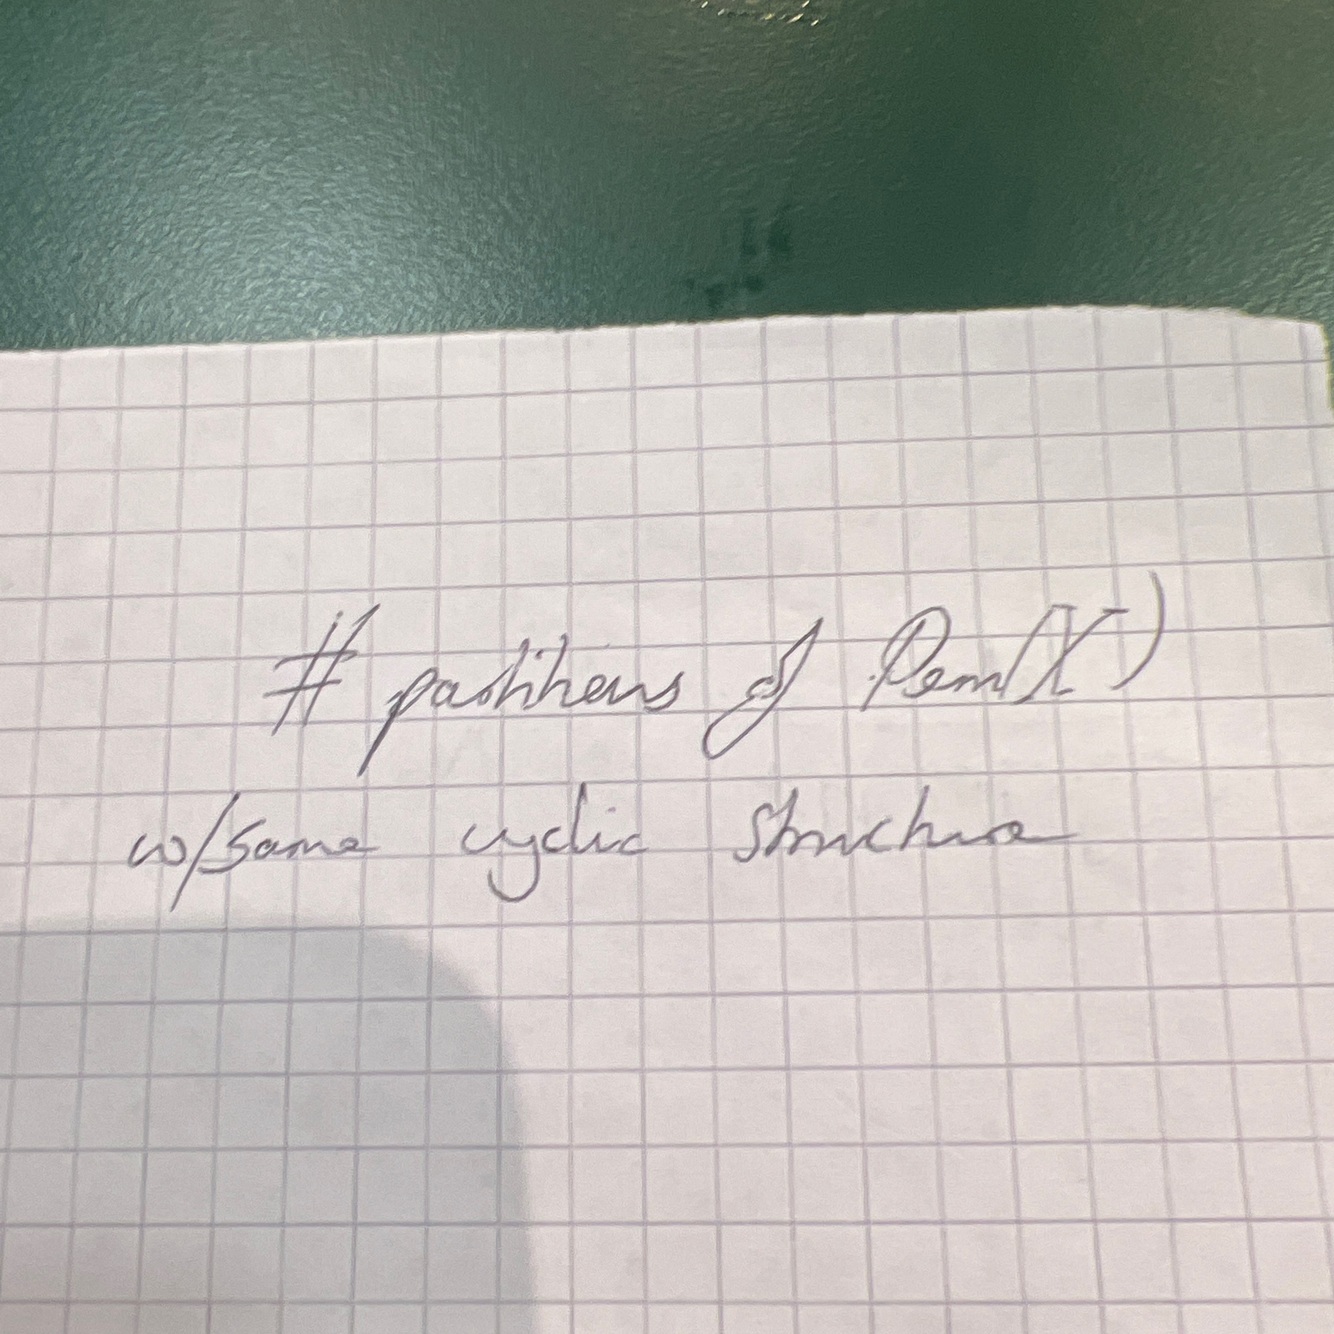 # partitions of Perm(X)
w/same cyclic structure